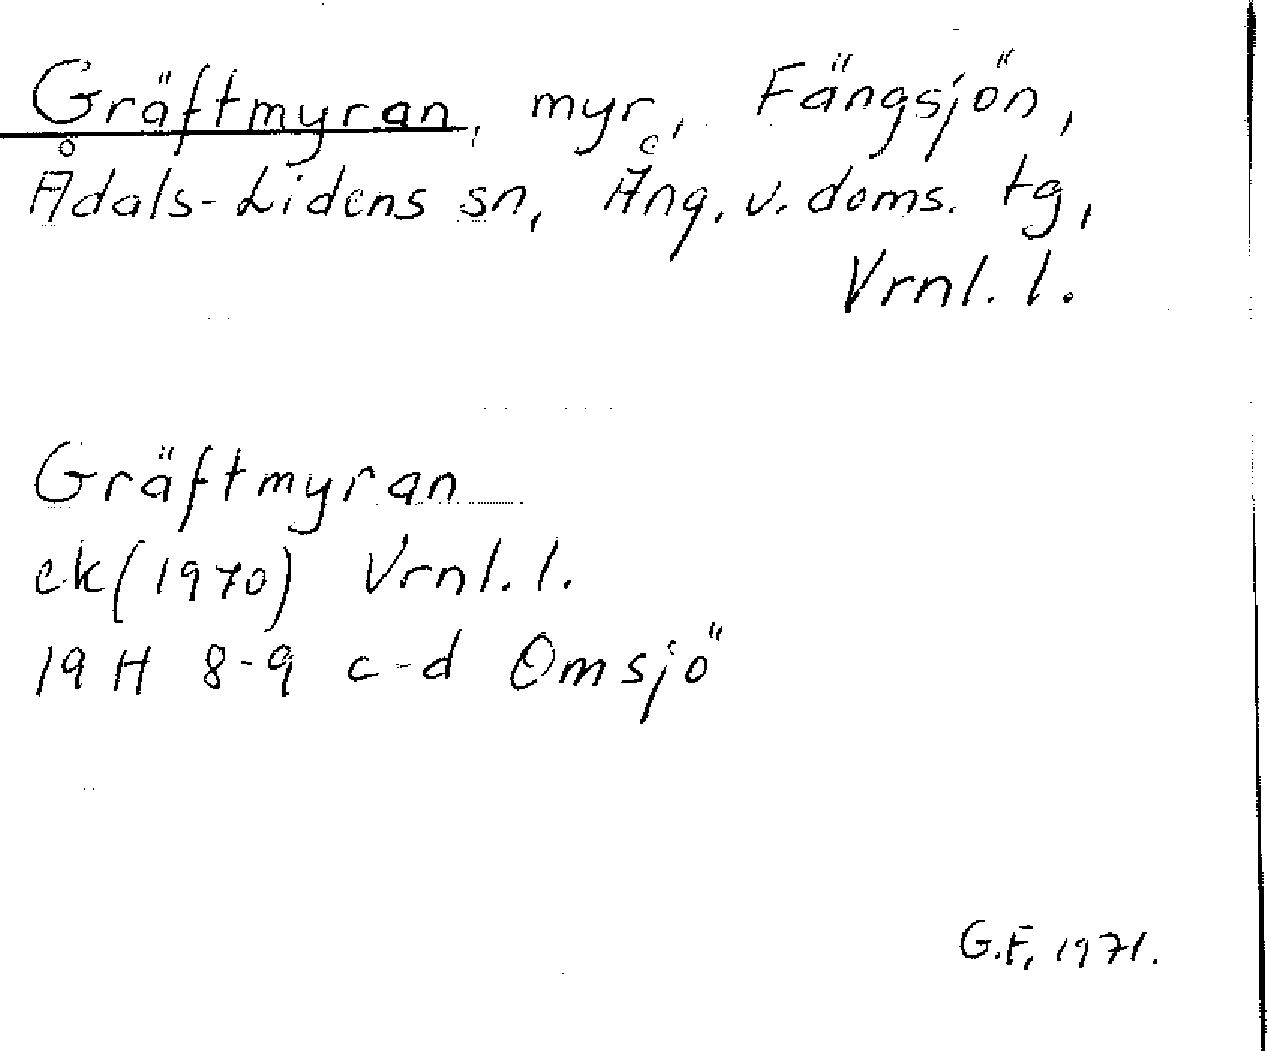 Gräftmyran, myr, Fängsjön,
Ådals-Lidens sn, Ång. v. doms. tg,
Vrnl. l.
Gräftmyran
ek(1970) Vrnl. l.
19 H 8-9 c-d Omsjö
G.F. 1971.